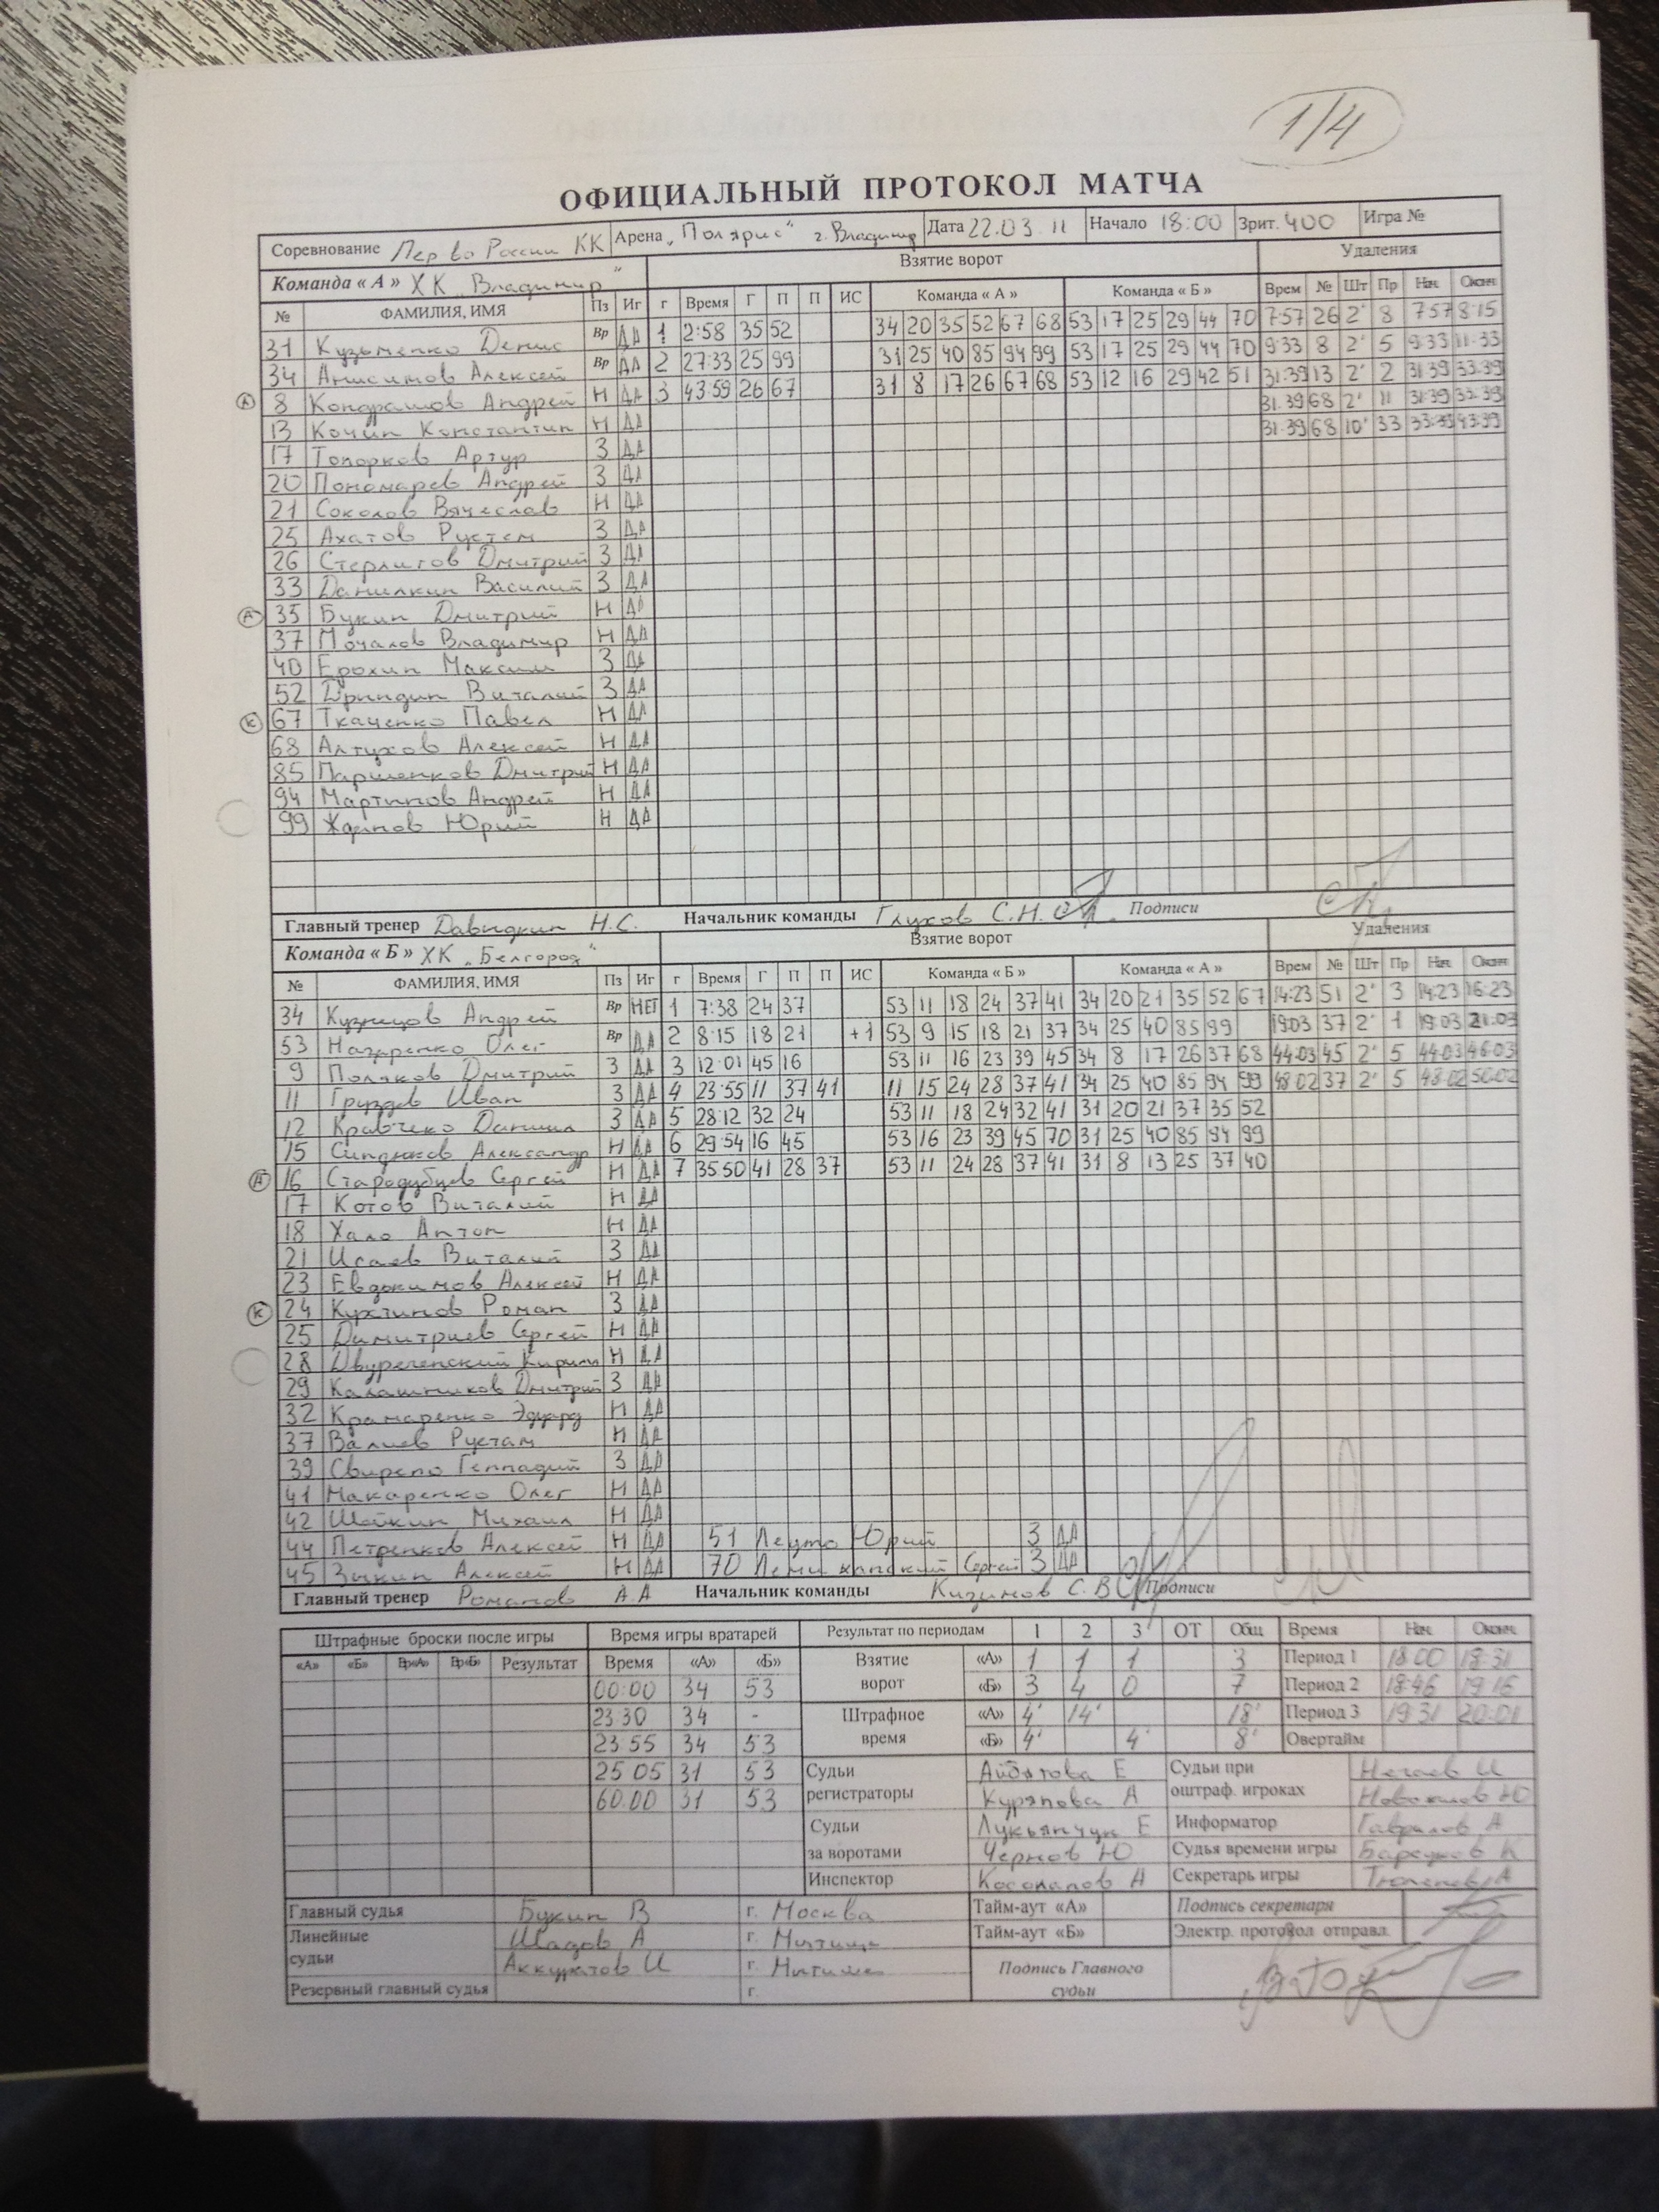 1/4
ОФИЦИАЛЬНЫЙ ПРОТОКОЛ МАТЧА
Соревнование Пер во России КК Арена „Полярис" г. Владимир Дата 22.03.11 Начало 18:00 Зрит. 400 Игра №
Команда « А » ХК „Владимир" Взятие ворот Удаления
№ ФАМИЛИЯ, ИМЯ Пз Иг г Время Г П П ИС Команда « А » Команда « Б » Врем № Шт Пр Нач. Оконч.
31 Кузьменко Денис Вр ДА 1 2:58 35 52 34 20 35 52 67 68 53 17 25 29 44 70 7:57 26 2' 8 7:57 8:15
34 Анисимов Алексей Вр ДА 2 27:33 25 99 31 25 40 85 94 99 53 17 25 29 44 70 9:33 8 2' 5 9:33 11:33
А 8 Кондрашов Андрей Н ДА 3 43:59 26 67 31 8 17 26 67 68 53 12 16 29 42 51 31:39 13 2' 2 31:39 33:39
13 Кочин Константин Н ДА 31.39 68 2' 11 31:39 33:39
17 Топорков Артур З ДА 31.39 68 10' 33 33:39 43:39
20 Пономарев Андрей З ДА
21 Соколов Вячеслав Н ДА
25 Ахатов Рустем З ДА
26 Стерлигов Дмитрий З ДА
33 Данилкин Василий З ДА
А 35 Букин Дмитрий Н ДА
37 Мочалов Владимир Н ДА
40 Ерохин Максим З ДА
52 Дриндин Виталий З ДА
К 67 Ткаченко Павел Н ДА
68 Алтухов Алексей Н ДА
85 Паршенков Дмитрий Н ДА
94 Мартынов Андрей Н ДА
99 Жданов Юрий Н ДА
Главный тренер Давыдкин Н.С. Начальник команды Глухов С.Н. Подписи
Команда « Б » ХК „Белгород" Взятие ворот Удаления
№ ФАМИЛИЯ, ИМЯ Пз Иг г Время Г П П ИС Команда « Б » Команда « А » Врем № Шт Пр Нач. Оконч.
34 Кузнецов Андрей Вр НЕТ 1 7:38 24 37 53 11 18 24 37 41 34 20 21 35 52 67 14:23 51 2' 3 14:23 16:23
53 Назаренко Олег Вр ДА 2 8:15 18 21 +1 53 9 15 18 21 37 34 25 40 85 99 19:03 37 2' 1 19:03 21:03
9 Поляков Дмитрий З ДА 3 12:01 45 16 53 11 16 23 39 45 34 8 17 26 37 68 44:03 45 2' 5 44:03 46:03
11 Груздов Иван З ДА 4 23:55 11 37 41 11 15 24 28 37 41 34 25 40 85 94 99 48:02 37 2' 5 48:02 50:02
12 Кравчеко Даниил З ДА 5 28:12 32 24 53 11 18 24 32 41 31 20 21 37 35 52
15 Синдюков Александр Н ДА 6 29:54 16 45 53 16 23 39 45 70 31 25 40 85 94 99
А 16 Стародубцев Сергей Н ДА 7 35 50 41 28 37 53 11 24 28 37 41 31 8 13 25 37 40
17 Котов Виталий Н ДА
18 Хало Антон Н ДА
21 Исаев Виталий З ДА
23 Евдокимов Алексей Н ДА
К 24 Курятинов Роман З ДА
25 Димитриев Сергей Н ДА
28 Двуреченский Кирилл Н ДА
29 Калашников Дмитрий З ДА
32 Крамаренко Эдуард Н ДА
37 Валиев Рустам Н ДА
39 Свирепо Геннадий З ДА
41 Макаренко Олег Н ДА
42 Шойкин Михаил Н ДА
44 Петренков Алексей Н ДА 51 Леуто Юрий З ДА
45 Зыкин Алексей Н ДА 70 Сергей З ДА
Главный тренер Романов А.А Начальник команды Кизимов С.В Подписи
Штрафные броски после игры Время игры вратарей Результат по периодам 1 2 3 ОТ Общ Время Нач. Оконч.
«А» «Б» Вр«А» Вр«Б» Результат Время «А» «Б» Взятие ворот «А» 1 1 1 3 Период 1 18:00 18:31
00:00 34 53 «Б» 3 4 0 7 Период 2 18:46 19:16
23 30 34 - Штрафное время «А» 4' 14' 18' Период 3 19:31 20:01
23 55 34 53 «Б» 4' 4' 8' Овертайм
25 05 31 53 Судьи регистраторы Айдятова Е Судьи при оштраф. игроках Нечаев И
60.00 31 53 Куряпова А Новожилов Ю
Судьи за воротами Лукьянчук Е Информатор Гаврилов А
Чернов Ю Судья времени игры Барсуков К
Инспектор Косолапов А Секретарь игры
Главный судья Букин В г. Москва Тайм-аут «А» Подпись секретаря
Линейные судьи Шадов А г. Мытищи Тайм-аут «Б» Электр. протокол отправл.
Аккуратов И г. Мытищи Подпись Главного судьи
Резервный главный судья г.